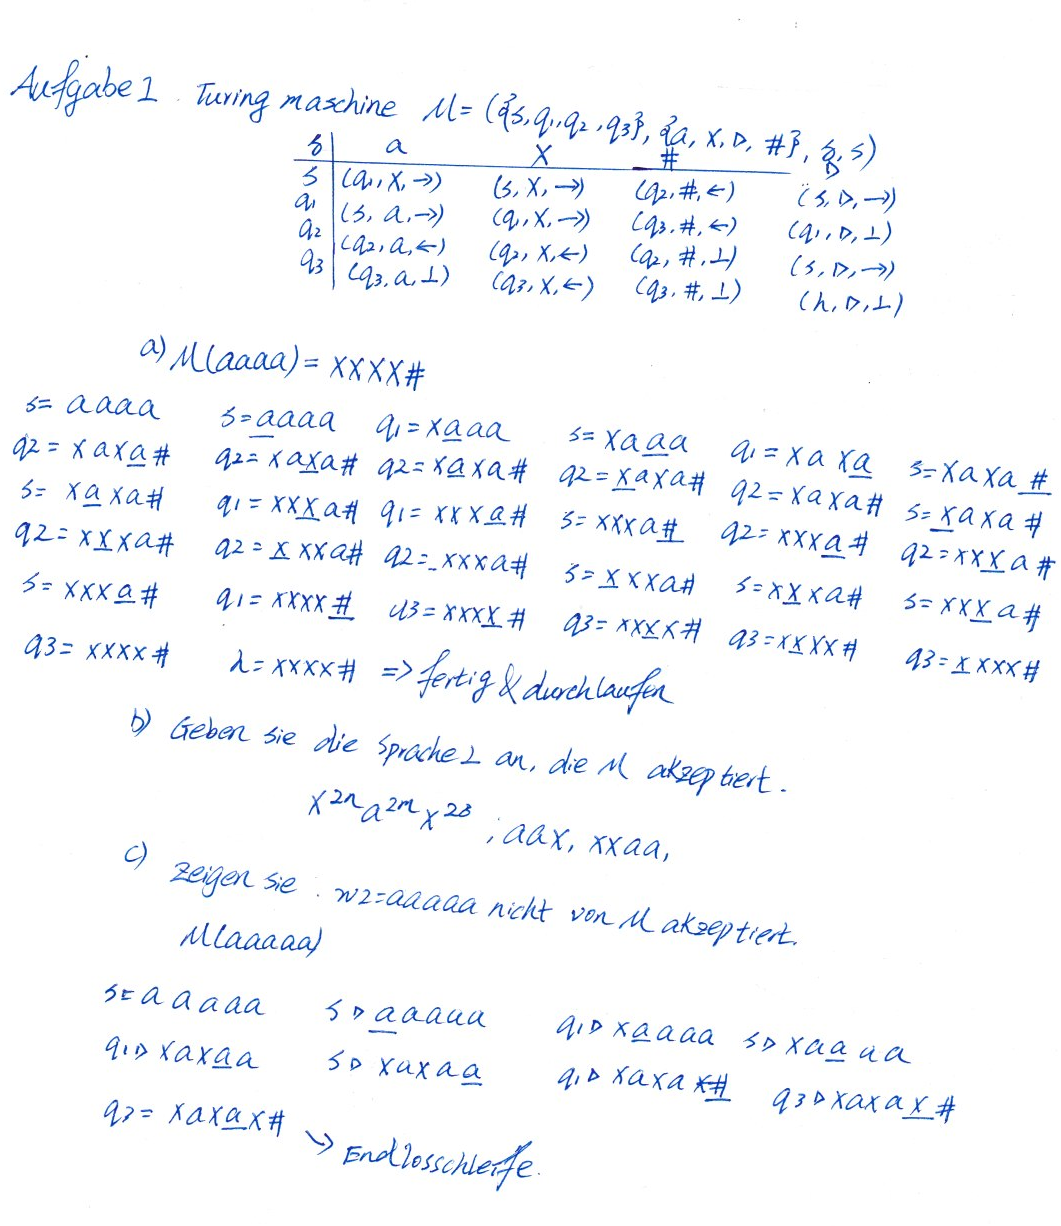 Aufgabe 1. Turing maschine M = ({s, q1, q2, q3}, {a, x, ▷, #}, δ, s)
δ a x # ▷
s (q1, x, →) (s, x, →) (q2, #, ←) (s, ▷, →)
q1 (s, a, →) (q1, x, →) (q3, #, ←) (q1, ▷, ⊥)
q2 (q2, a, ←) (q2, x, ←) (q2, #, ⊥) (s, ▷, →)
q3 (q3, a, ⊥) (q3, x, ←) (q3, #, ⊥) (h, ▷, ⊥)
a) M(aaaa) = xxxx#
s= aaaa s=aaaa q1=xaaa s=xaaa q1=xaxa s=xaxa#
q2=xaxa# q2=xaxa# q2=xaxa# q2=xaxa# q2=xaxa# s=xaxa#
s=xaxa# q1=xxxa# q1=xxxa# s=xxxa# q2=xxxa# q2=xxxa#
q2=xxxa# q2=xxxa# q2=_xxxa# s=xxxa# s=xxxa# s=xxxa#
s=xxxa# q1=xxxx# q3=xxxx# q3=xxxx# q3=xxxx# q3=xxxx#
q3=xxxx# h=xxxx# => fertig & durchlaufen
b) Geben sie die sprache L an, die M akzeptiert.
x^2n a^2m x^28 ; aax, xxaa,
c) zeigen sie. w2=aaaaa nicht von M akzeptiert.
M(aaaaa)
s=aaaaa s▷aaaaa q1▷xaaaa s▷xaaaa
q1▷xaxaa s▷xaxaa q1▷xaxax# q3▷xaxax#
q3=xaxax# ↘ Endlosschleife.